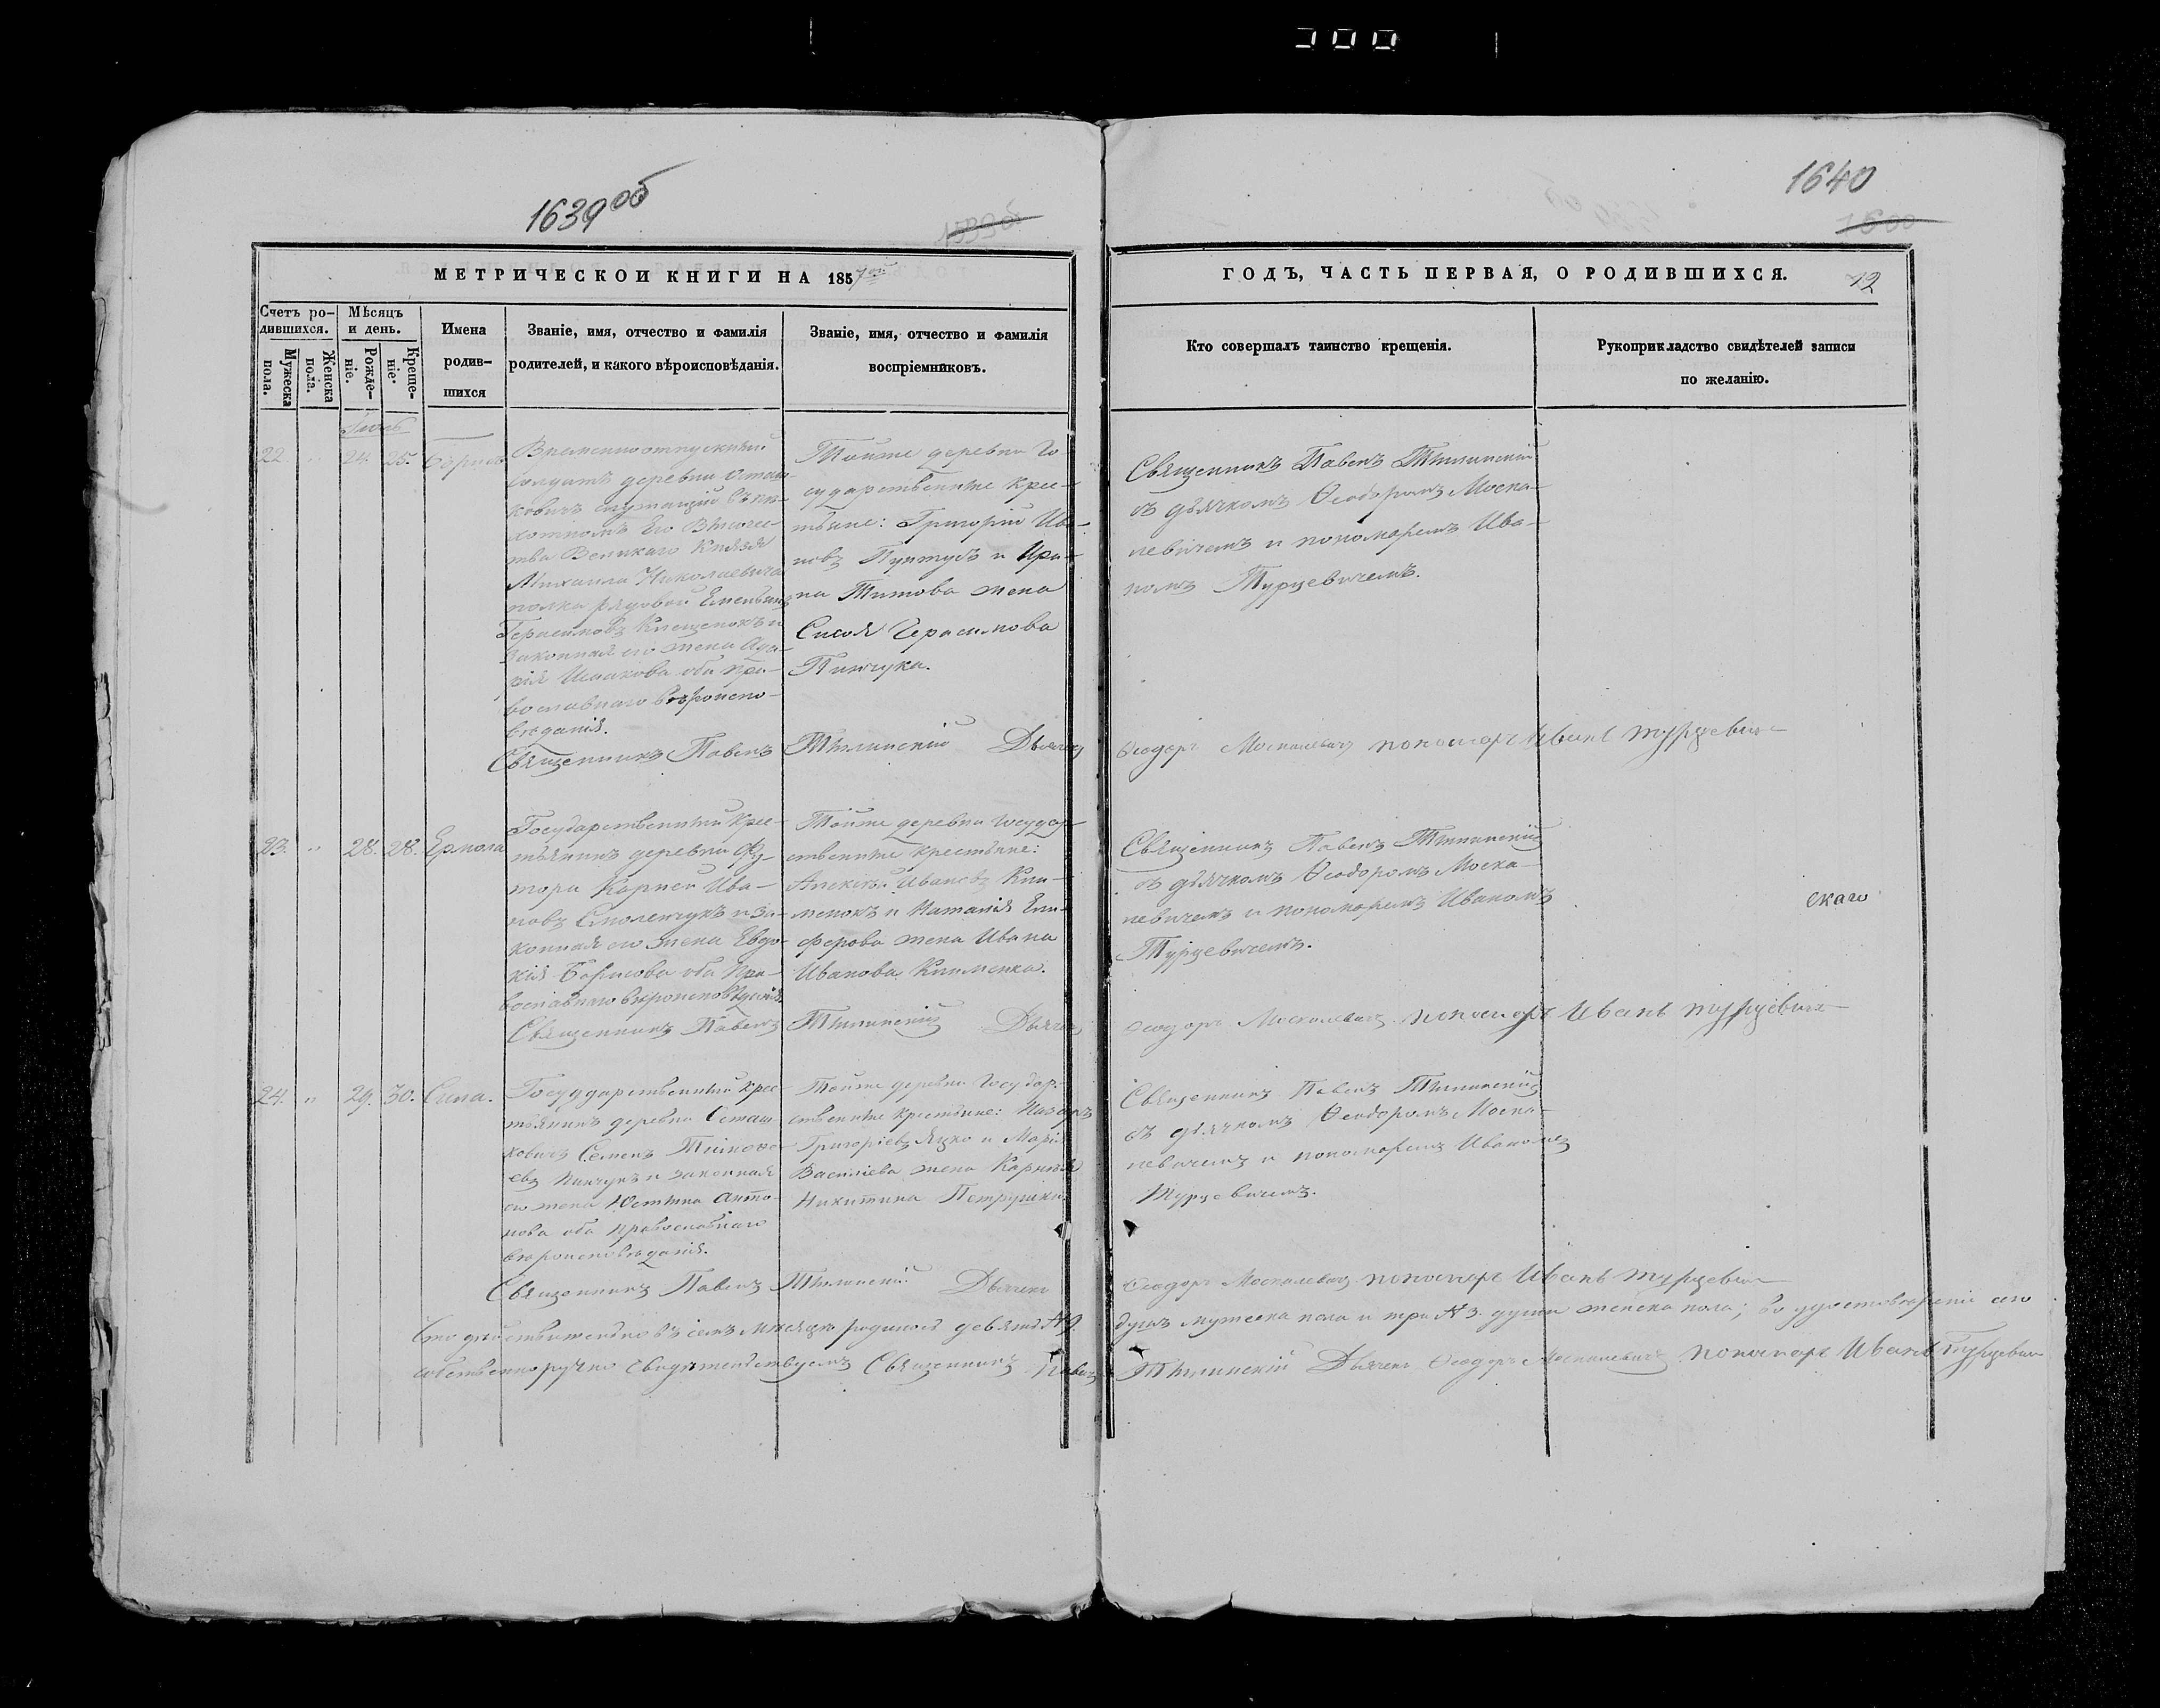 1639 об
1640
1599 об
1600
МЕТРИЧЕСКОЙ КНИГИ НА 1857ой
ГОДЪ, ЧАСТЬ ПЕРВАЯ, О РОДИВШИХСЯ.
12
Счетъ ро-
дившихся.
Мужеска
пола.
Женска
пола.
Мѣсяцъ
и день.
Рожде-
ніе.
Креще-
ніе.
Имена
родив-
шихся
Званіе, имя, отчество и фамилія
родителей, и какого вѣроисповѣданія.
Званіе, имя, отчество и фамилія
воспріемниковъ.
Кто совершалъ таинство крещенія.
Рукоприкладство свидѣтелей записи
по желанію.
22. " 24. 25. Борисъ
Временноотпускный
солдатъ деревни Осташ-
ковичъ служащій въ пѣ-
хотномъ Его Высоче-
тва Великаго Князя
Михаила Николаевича
полка рядовой Емельянъ
Герасимовъ Клещенокъ и
законная его жена
Исаакова оба пра-
вославнаго вѣроиспо-
вѣданія.
Тойже деревни Го-
сударственные крес-
тьяне: Григорій Ива-
новъ Пунтусъ и Ири-
на Титова жена
Сисоя Герасимова
Пинчука.
Священникъ Павелъ Тышинскій
съ дьячкомъ Ѳеодоромъ Моска-
левичемъ и пономаремъ Ива-
номъ Турцевичемъ.
Священникъ Павелъ Тышинскій Дьячекъ Ѳеодоръ Москалевичъ пономарь Иванъ Турцевичъ
23. " 28. 28. Ермола
Государственный крес-
тьянинъ деревни Ху-
тора Карпей Ива-
новъ Смоленчукъ и за-
конная его жена Евдо-
кія Борисова оба пра-
вославнаго вѣроисповѣданія
Тойже деревни государ-
ственные крестьяне:
Алексѣй Ивановъ Кли-
менокъ и Наталія Ели-
ферова жена Ивана
Иванова Клименка.
Священникъ Павелъ Тышинскій
съ дьячкомъ Ѳеодоромъ Моска-
левичемъ и пономаремъ Иваномъ
Турцевичемъ.
скаго
Священникъ Павелъ Тышинскій Дьячекъ Ѳеодоръ Москалевичъ пономарь Иванъ Турцевичъ
24. " 29. 30. Сила.
Государственный крес-
тьянинъ деревни Осташ-
ковичъ Семенъ Тимофе-
евъ Пинчукъ и законная
его жена Юстина Анто-
нова оба православнаго
вѣроисповѣданія.
Тойже деревни Государ-
ственные крестьяне: Назаръ
Григоріевъ Яцко и Марія
Василіева жена Карпея
Никитина Петрушки
Священникъ Павелъ Тышинскій
съ дьячкомъ Ѳеодоромъ Моска-
левичемъ и пономаремъ Иваномъ
Турцевичемъ.
Священникъ Павелъ Тышинскій Дьячекъ Ѳеодоръ Москалевичъ пономарь Иванъ Турцевичъ
Что дѣйствительно въ семъ мѣсяцѣ родилось девять № 9. душъ мужеска пола и три № 3. души женска пола; во удостовѣреніе сего
собственноручно свидѣтельствуемъ Священникъ Павелъ Тышинскій Дьячекъ Ѳеодоръ Москалевичъ пономарь Иванъ Турцевичъ